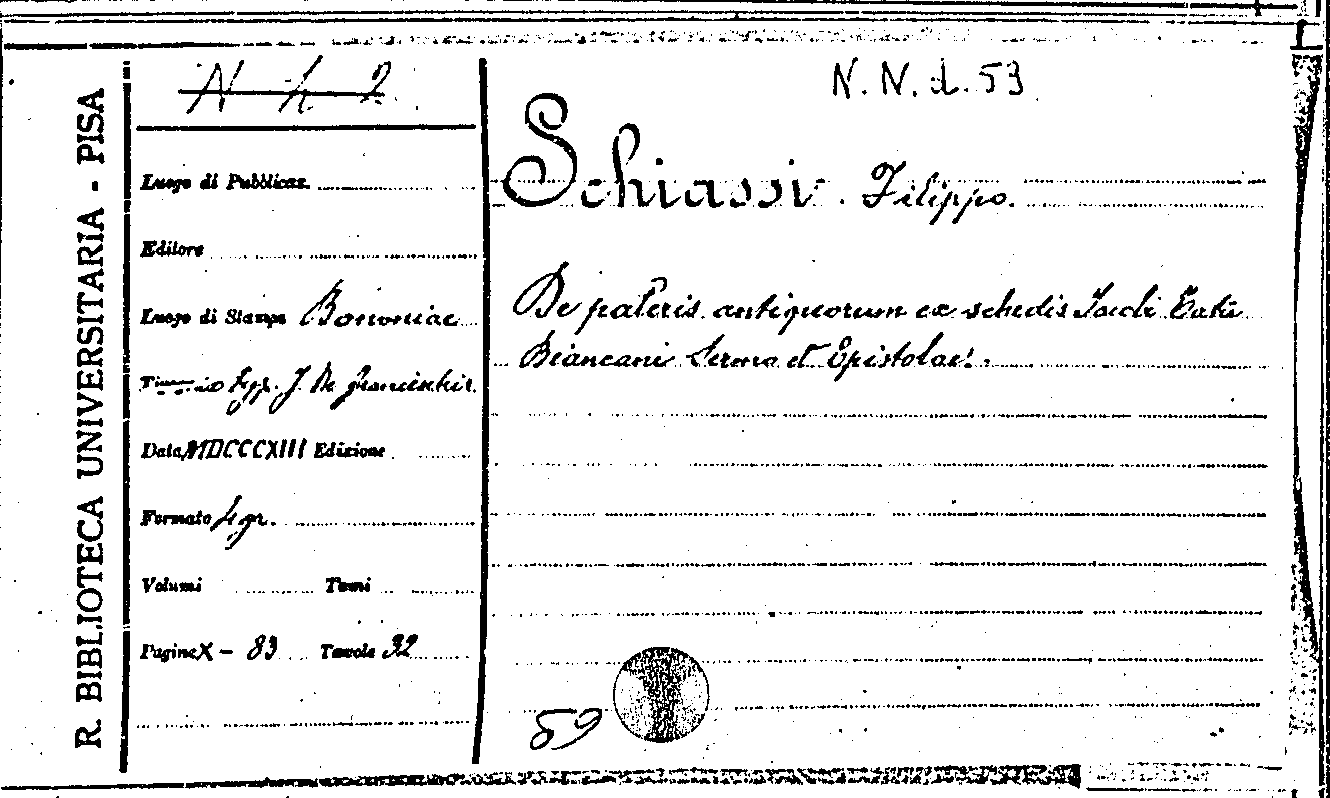 R. BIBLIOTECA UNIVERSITARIA - PISA
N h 2
Luogo di Pubblicaz.
Editore
Luogo di Stampa Bononiae
Typ. J. De Franceschis
Data MDCCCXIII Edizione
Formato 4 gr.
Volumi Tomi
Pagine X - 83 Tavole 32
N. N. d. 53
Schiassi Filippo.
De pateris antiquorum ex schedis Jacobi Tatii
Biancani Sermo et Epistolae.
59